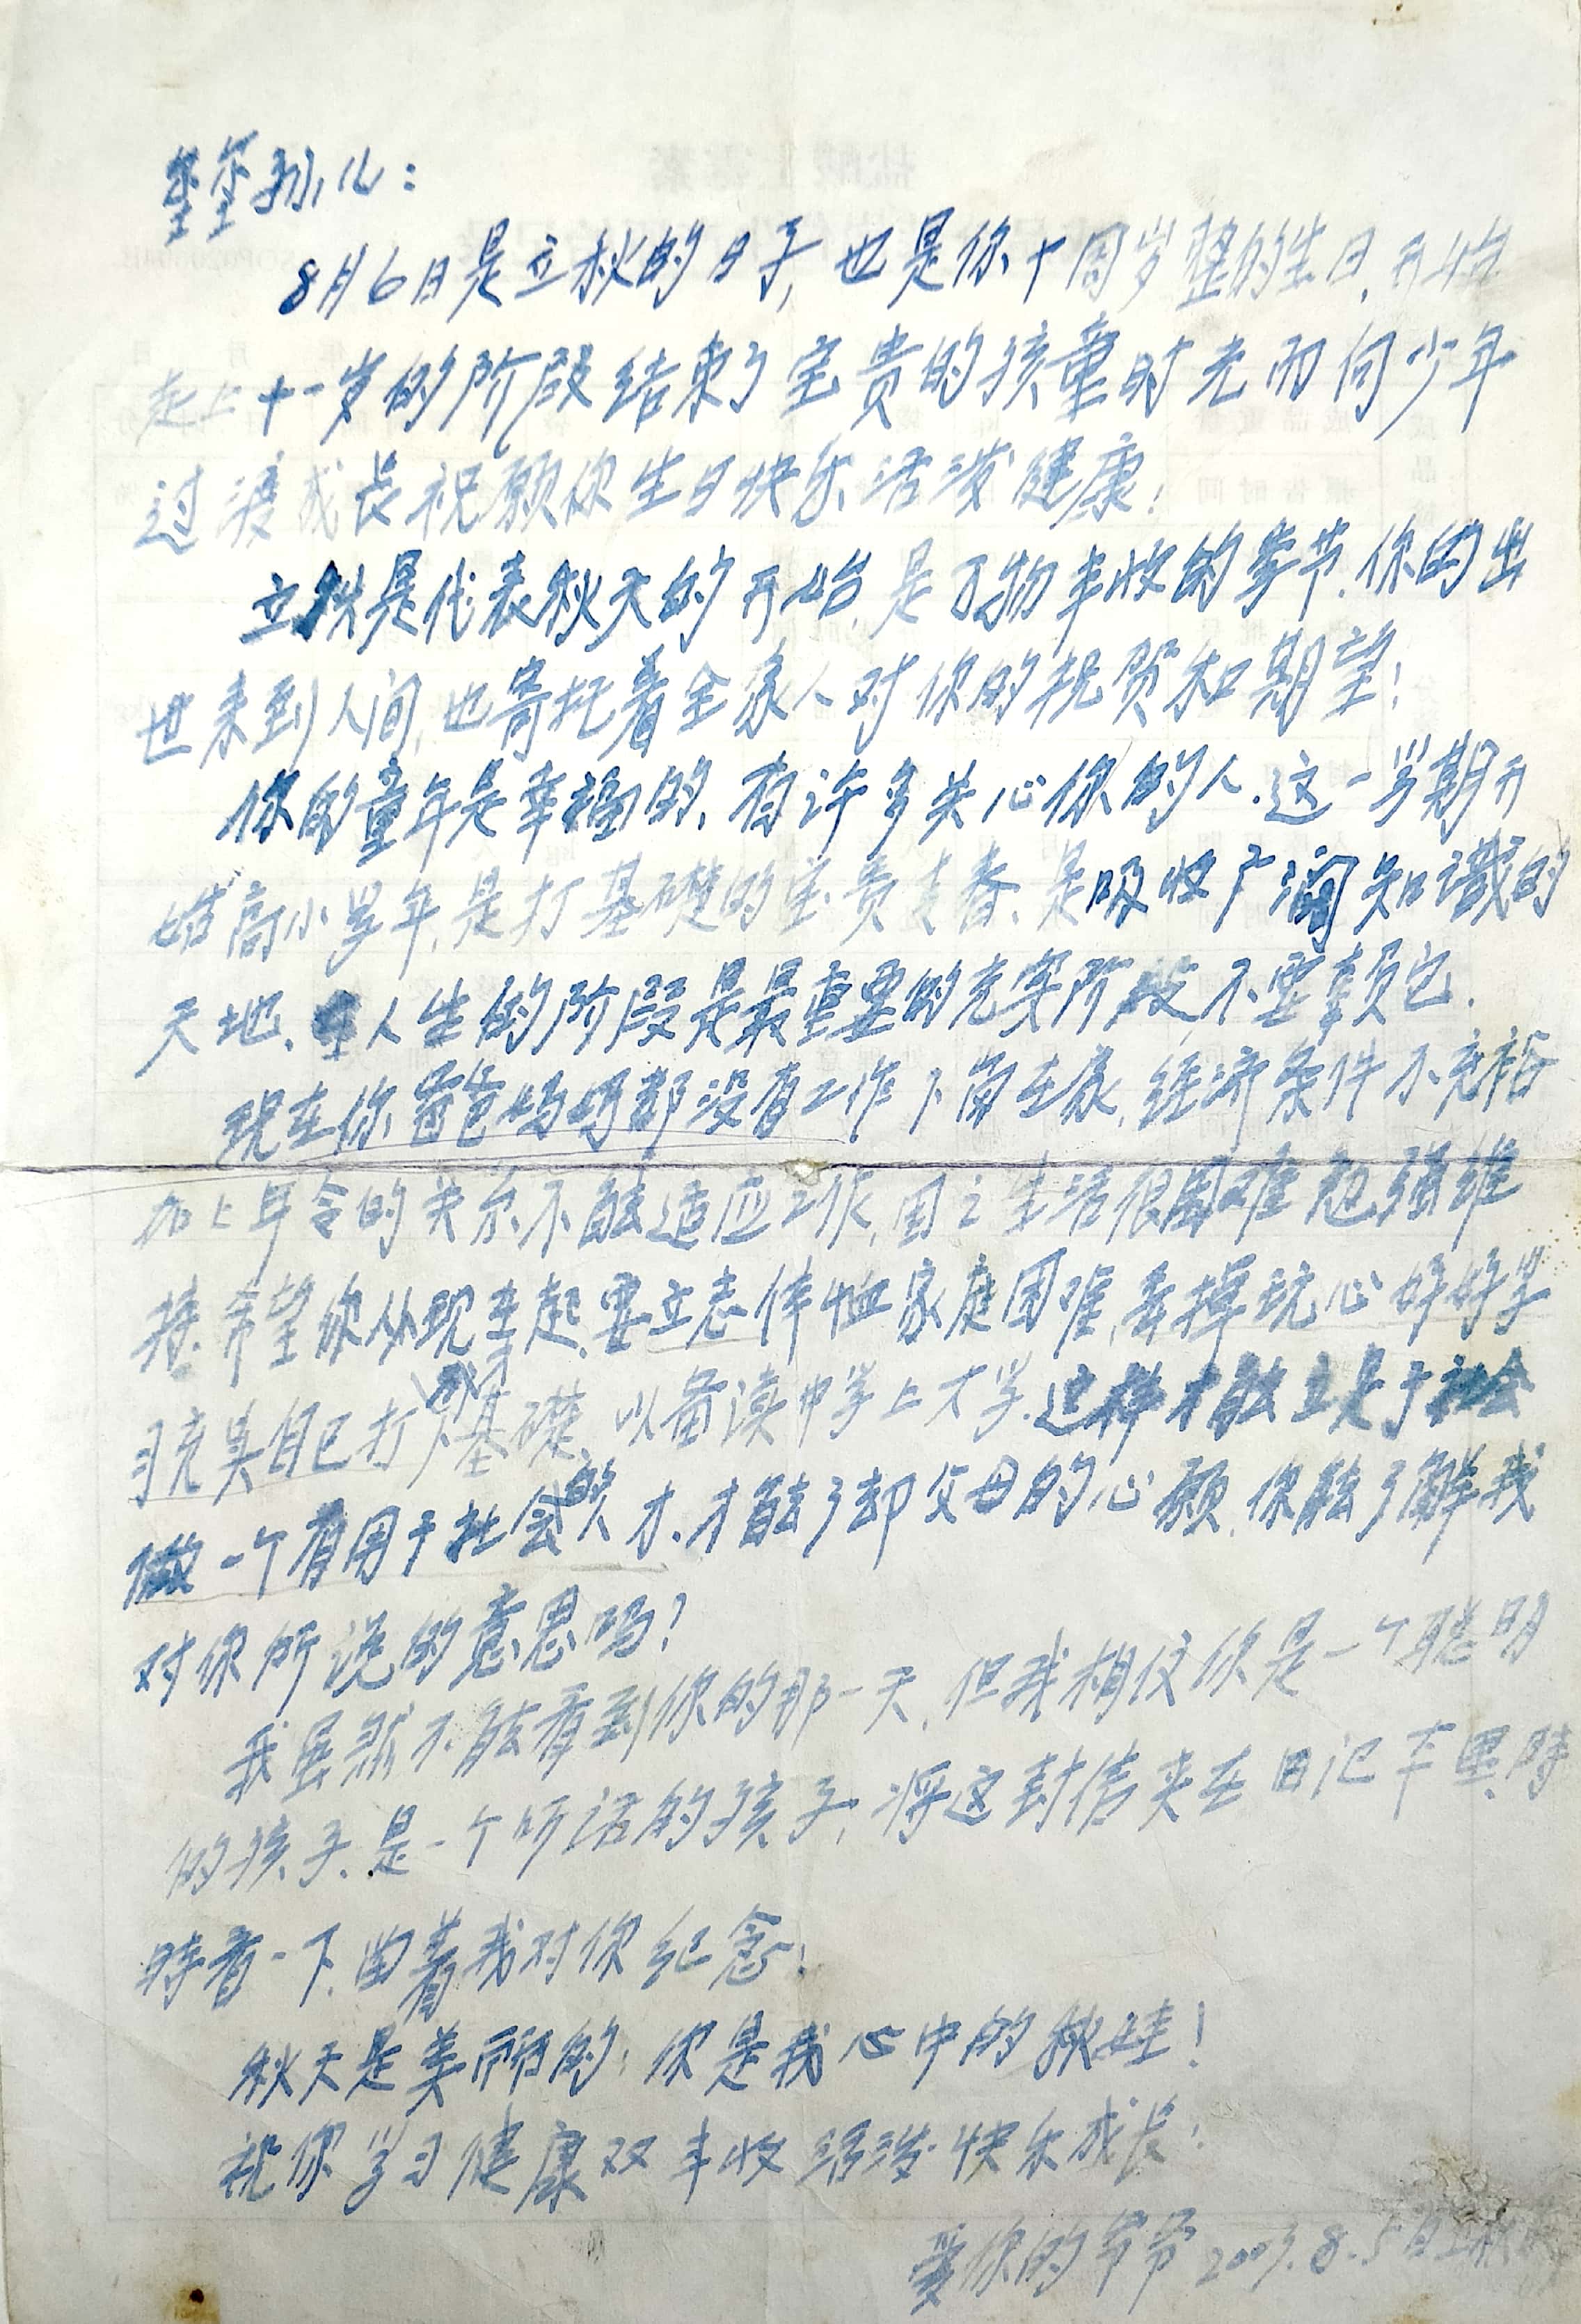 玺玺孙儿：
8月6日是立秋的日子，也是你十周岁整的生日，开始
走上十一岁的阶段结束了宝贵的孩童时光而向少年
过渡成长祝愿你生日快乐、活泼健康！
立秋是代表秋天的开始，是万物丰收的季节．你的出
世来到人间，也寄托着全家人对你的祝贺和期望！
你的童年是幸福的、有许多关心你的人．这一学期开
始高小学年，是打基礎的宝贵青春、是吸收广阔知识的
天地、人生的阶段是最重要的充实阶段不要辜负它．
现在你爸爸妈妈都没有工作下岗在家，经济条件不充裕
加上年令的关系不能适应工作，因之生活很困难勉强维
持．希望你从现在起，要立志体恤家庭困难，丢掉玩心好好学
习充实自己打下基礎、以备读中学上大学．这样才能立足于社会
做一个有用于社会的人才．才能了却父母的心愿，你能了解我
对你所说的意思吗？
我虽然不能看到你的那一天，但我相信你是一个聪明
的孩子、是一个听话的孩子，将这封信夹在日记本里，時
時看一下，由着我对你纪念！
秋天是美丽的，你是我心中的秋娃！
祝你学习健康双丰收 活泼快乐成长！
爱你的爷爷 2003.8.5日立秋